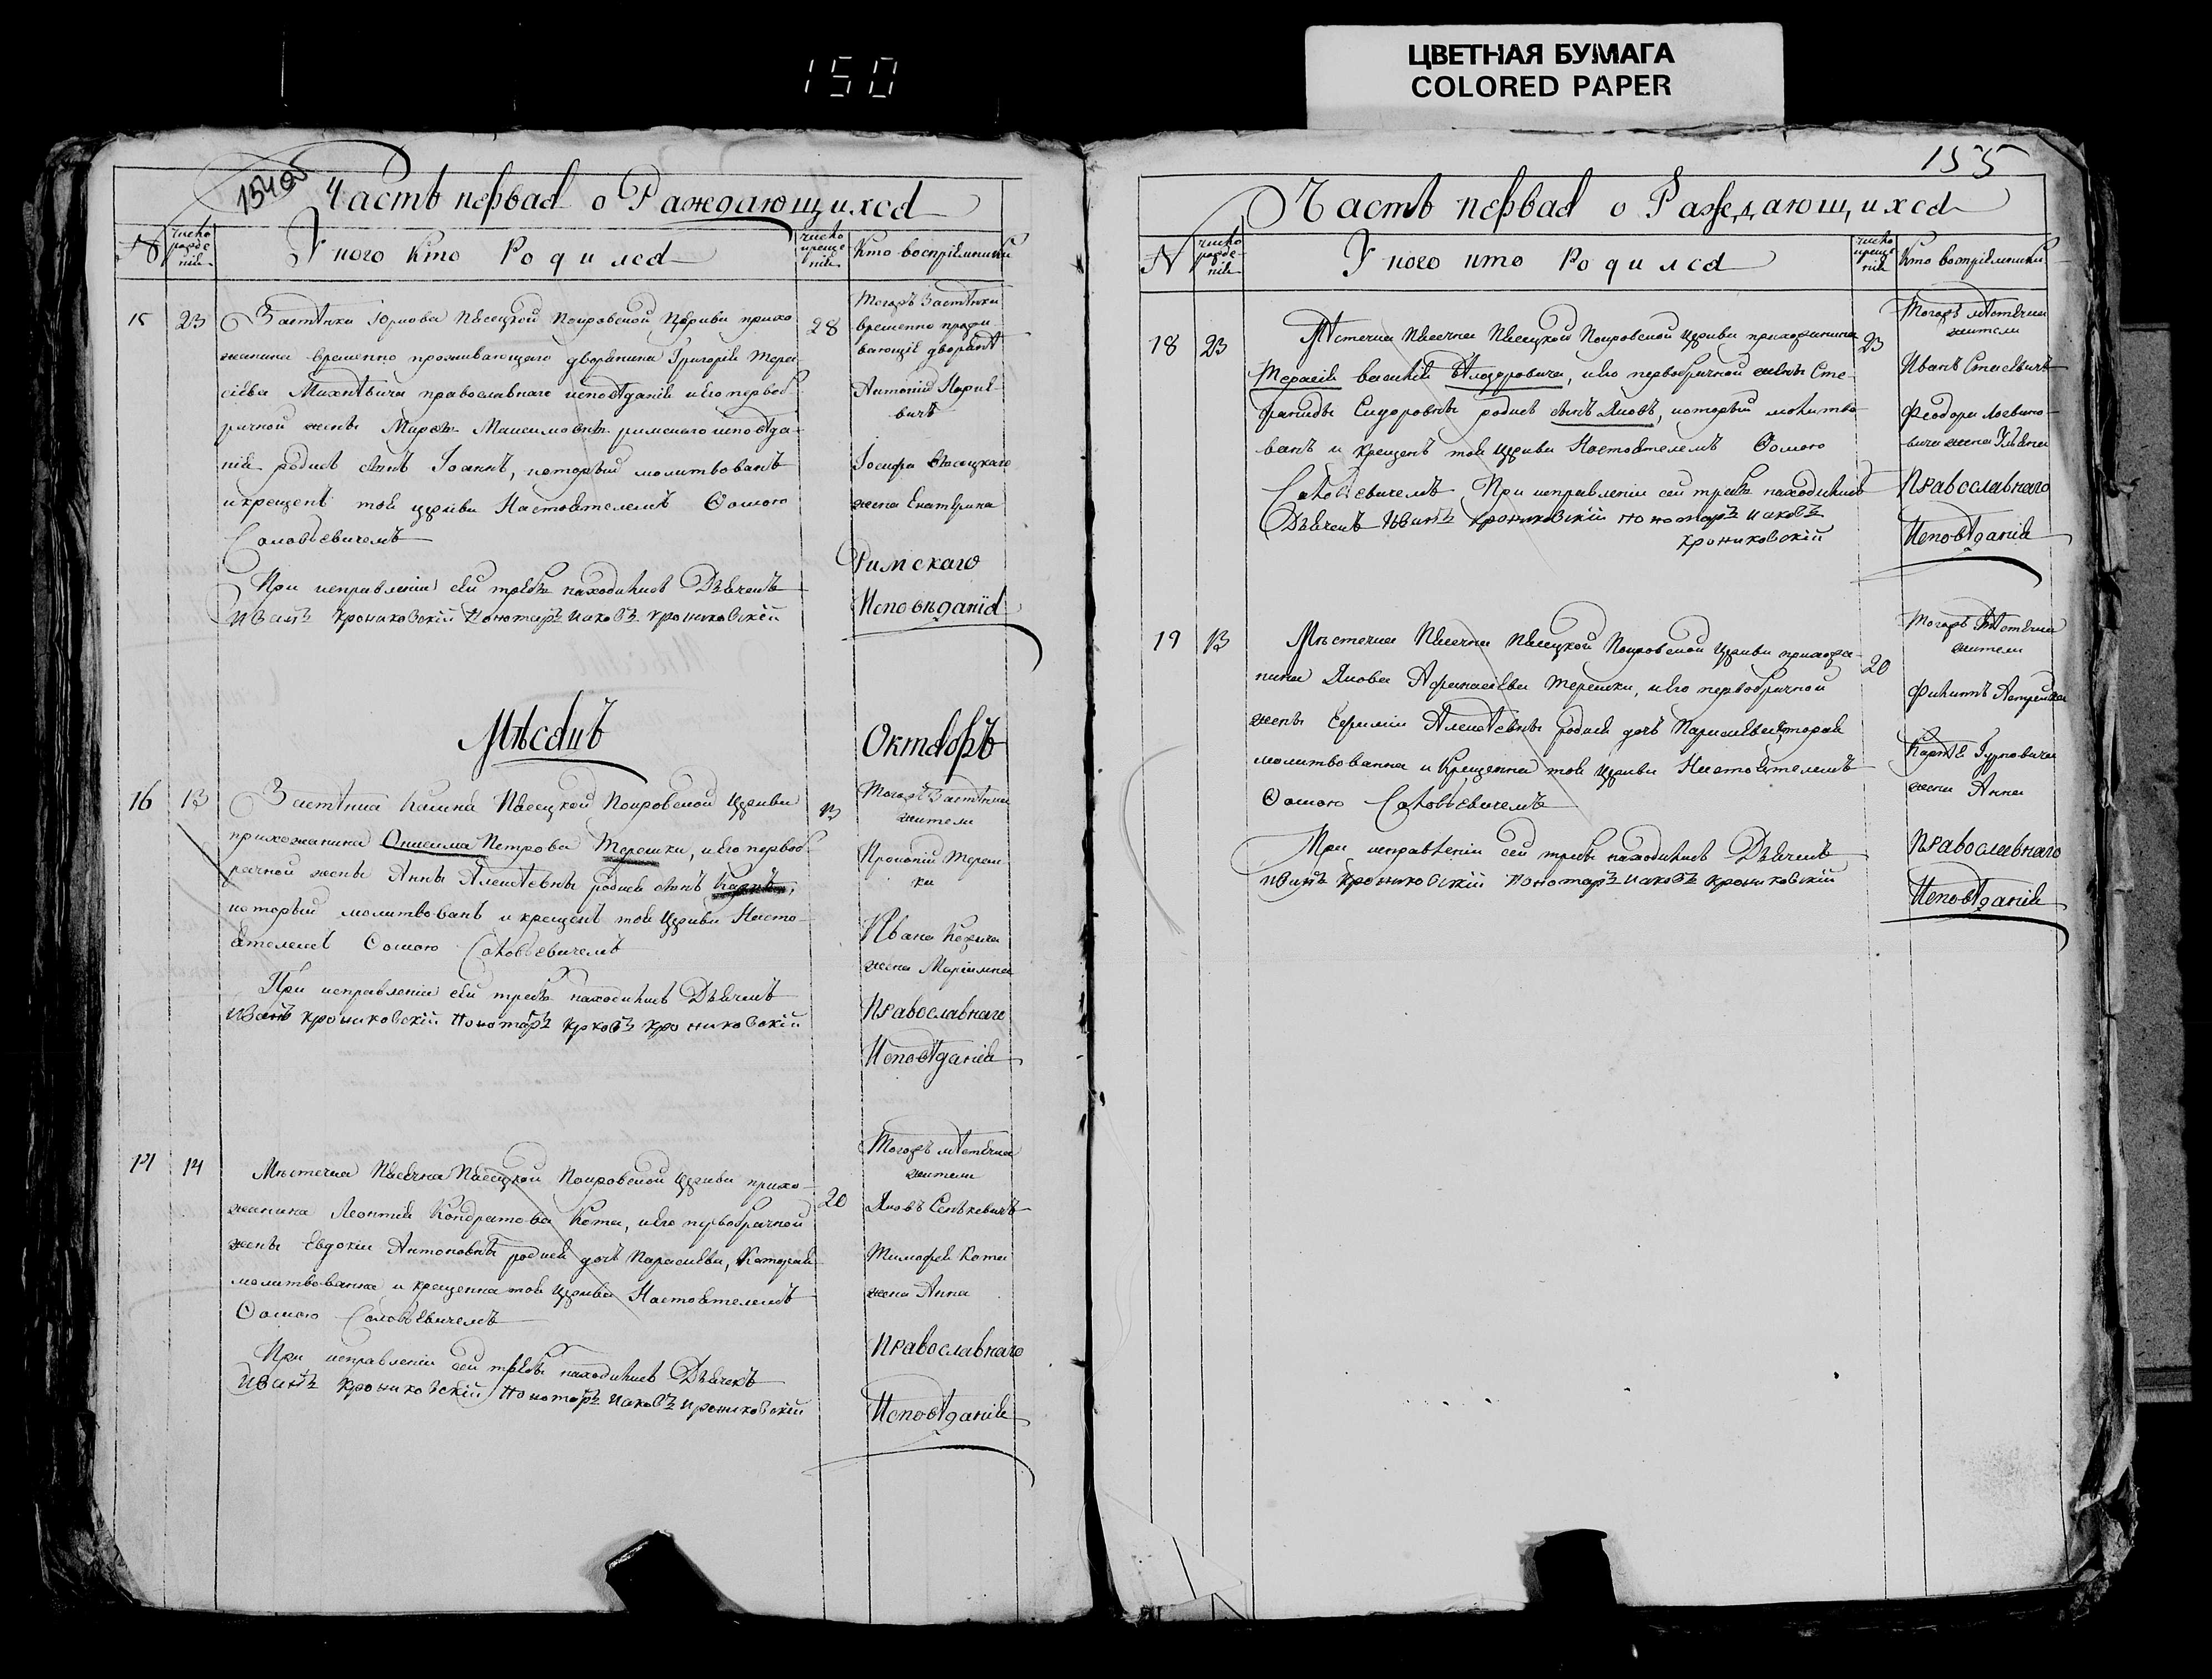 150
ЦВЕТНАЯ БУМАГА
COLORED PAPER
154об
Часть первая о Раждающихся
№
число рожде нія
У кого кто Родился
число креще нія
Кто воспріемники
15 23 28
Застѣнка Юркова Пѣсецкой Покровской Церкви прихо
жанина временно проживающаго дворянина Григорія Тера
сіева Михнѣвича православнаго исповѣданія и его первоб
рачной жены Максимовны римскаго исповѣда
нія родися сынъ Іоаннъ, который молитвованъ
и крещенъ той церкви Настоятелемъ Ѳомою
Соловьевичемъ
При исправленіи сей требы находились Дьячекъ
Иванъ Крониковскій Пономарь Иаковъ Крониковскій
Тогожъ Застѣнка
временно прожи
вающіе дворянѣ
Антоній
Іосифа
жена Екатерина
Римскаго
Исповѣданія
Мѣсяцъ Октябрь
16 13 13
Застѣнка Пѣсецкой Покровской Церкви
прихожанина Онисима Петрова Терешки, и его первоб
рачной жены Анны Алексѣевны родися сынъ
который молитвованъ и крещенъ той Церкви Насто
ятелемъ Ѳомою Соловьевичемъ
При исправленіи сей требы находились Дьячекъ
Иванъ Крониковскій Пономарь Крониковскій
Тогожъ Застѣнка
жители
Прокопій Тереш
ка
Ивана
жена Маріянна
Православнаго
Исповѣданія
17 14 20
Мѣстечка Пѣсечна Пѣсецкой Покровской Церкви прихо
жанина Леонтія Кондратова Кота, и его первобрачной
жены Евдокіи Антоновны родися дочь Параскева, Которая
молитвованна и крещенна той Церкви Настоятелемъ
Ѳомою Соловьевичемъ
При исправленіи сей требы находились Дьячекъ
Иванъ Крониковскій Пономарь Иаковъ Крониковскій
Тогожъ мѣстечка
жители
Яковъ Сенькевичъ
Тимофея Кота
жена Анна
Православнаго
Исповѣданія
155
Часть первая о Раждающихся
N
число рожде нія
У кого кто Родился
число креще нія
Кто воспріемники
18 23 23
Мѣстечка Пѣсечна Пѣсецкой Покровской Церкви прихожанина
Терасія, и его первобрачной жены Сте
фаниды Сидоровны родися сынъ Яковъ, который молитво
ванъ и крещенъ той Церкви Настоятелемъ Ѳомою
Соловьевичемъ При исправленіи сей требы находились
Дьячекъ Иванъ Крониковскій Пономарь Иаковъ
Крониковскій
Тогожъ мѣстечка
жители
Иванъ Стасевичъ
Феодора
жена Ульяна
Православнаго
Исповѣданія
19 13 20
Мѣстечка Пѣсечна Пѣсецкой Покровской Церкви прихожа
нина Якова Афанасіева Терешки, и его первобрачной
жены Ефиміи Алексѣевны родися дочь Параскева которая
молитвованна и Крещенна той Церкви Настоятелемъ
Ѳомою Соловьевичемъ
При исправленіи сей требы находились Дьячекъ
Иванъ Крониковскій Пономарь Иаковъ Крониковскій
Тогожъ Мѣстечка
жители
Филиппъ
жена Анна
Православнаго
Исповѣданія